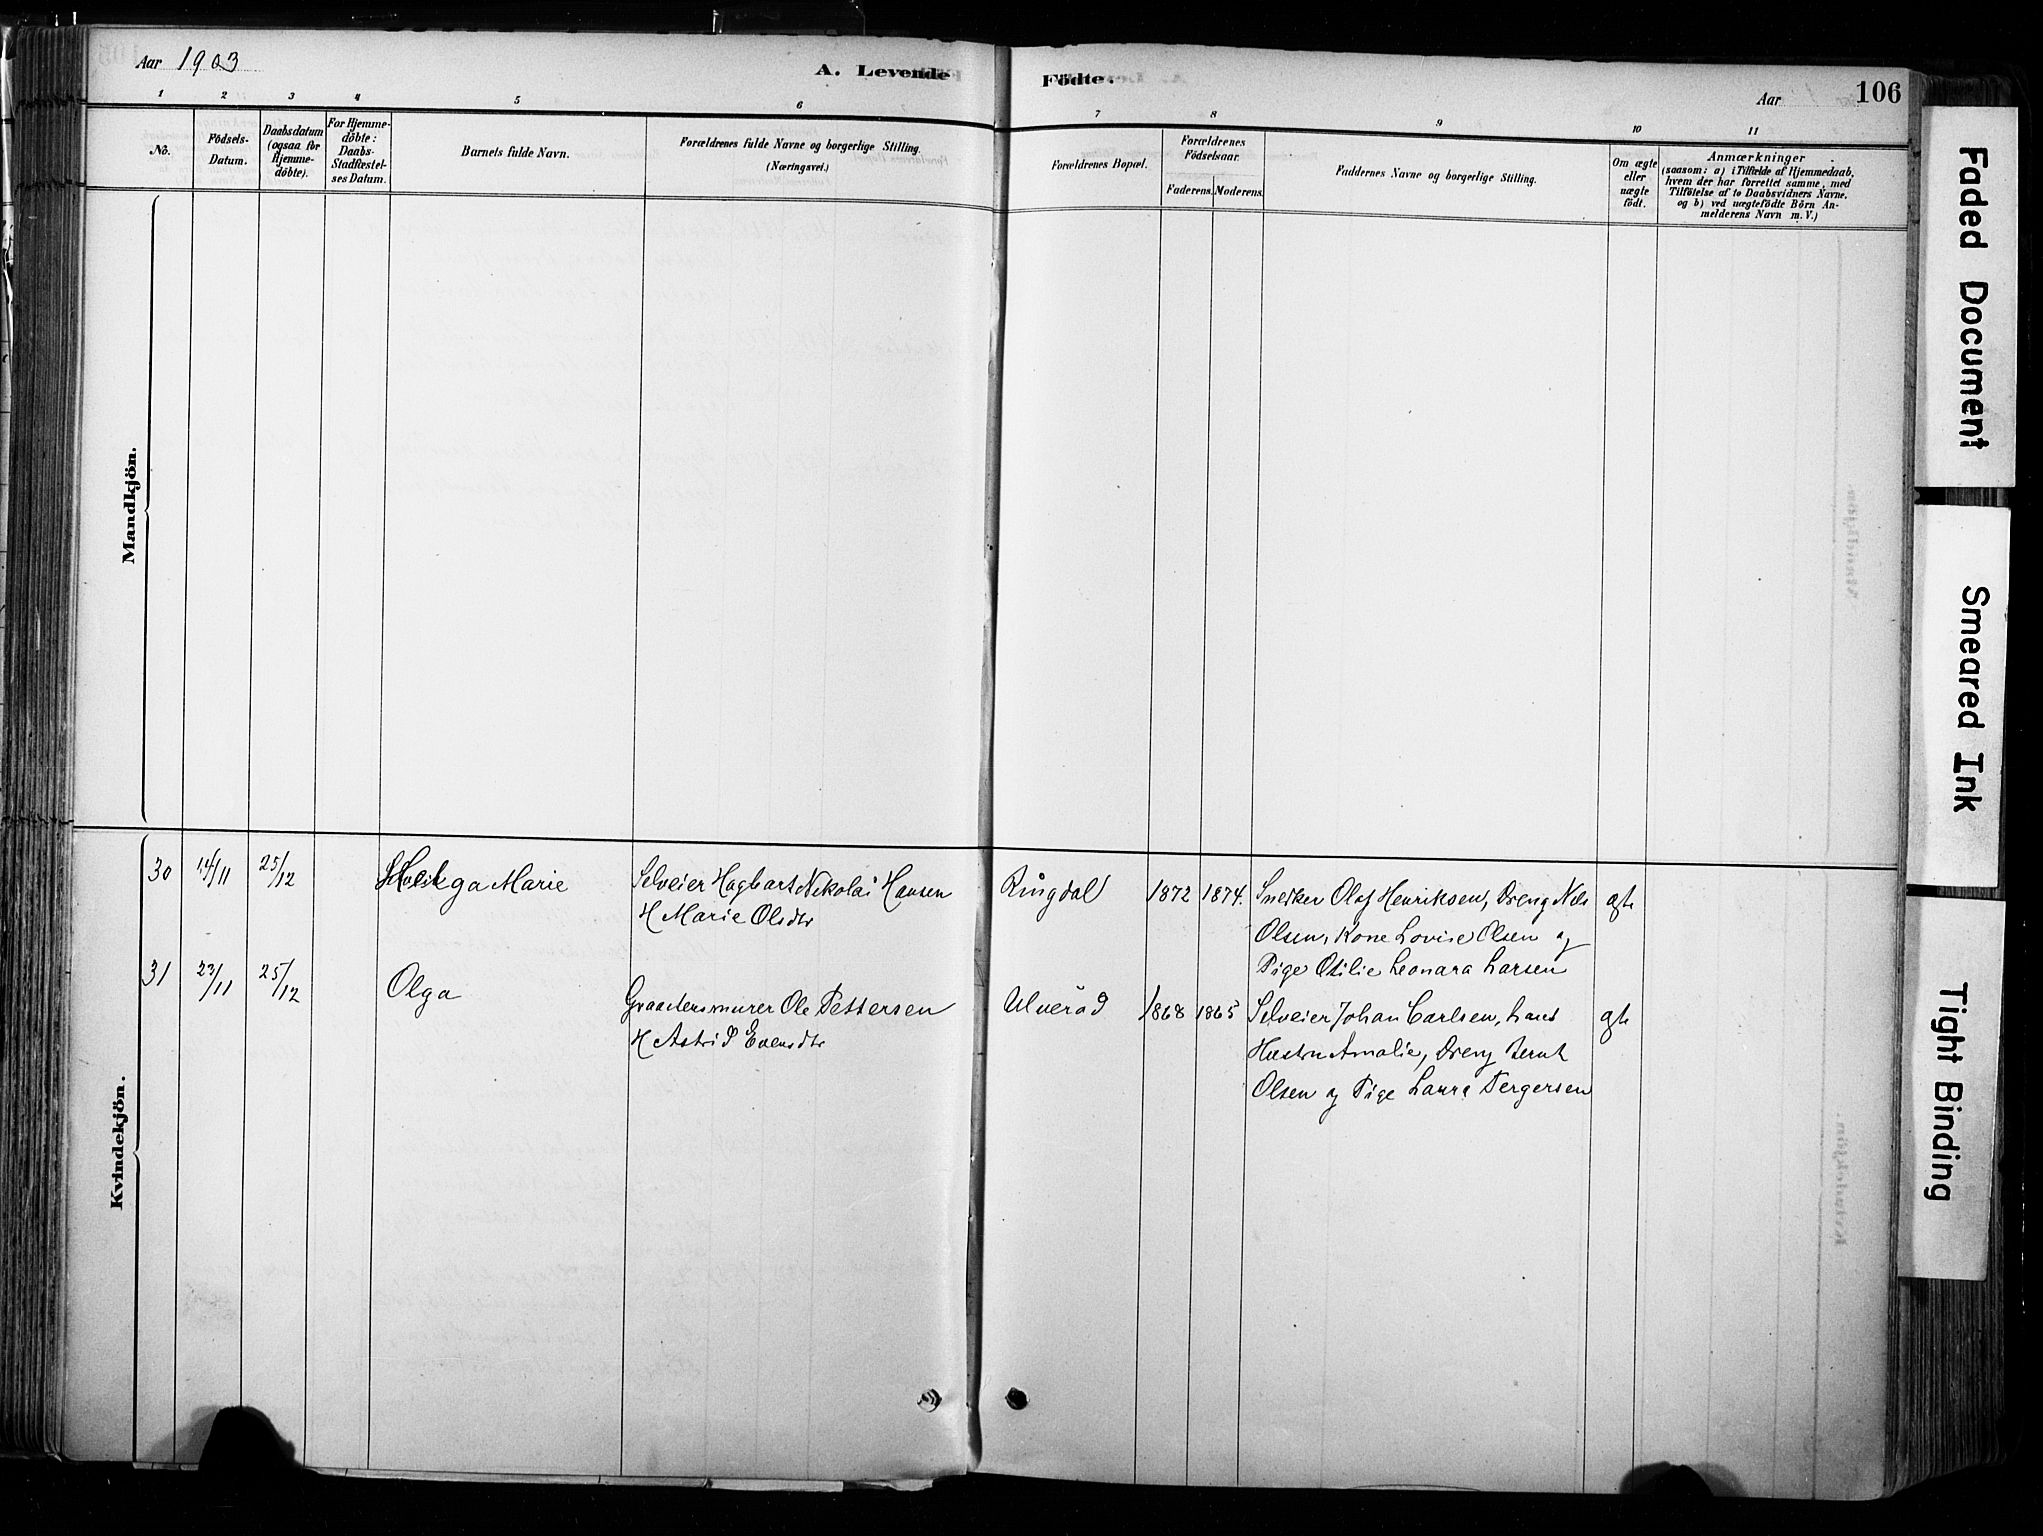 Aar 1903
A. Levende Födte.
Aar
106
1 2 3 4 5 6 7 8 9 10 11
No.
Födsels-
Datum.
Daabsdatum
(ogsaa for
Hjemme-
döbte).
For Hjemme-
döbte:
Daabs-
Stadfæstel-
ses Datum.
Barnets fulde Navn.
Forældrenes fulde Navne og borgerlige Stilling.
(Næringsvei.)
Forældrenes Bopæl.
Forældrenes
Födselsaar.
Faderens. Moderens.
Faddernes Navne og borgerlige Stilling.
Om ægte
eller
uægte
födt.
Anmærkninger
(saasom: a) i Tilfælde af Hjemmedaab,
hvem der har forrettet samme, med
Tilföielse af to Daabsvidners Navne,
og b) ved uægtefödte Börn An-
melderens Navn m. V.)
Mandkjön.
Kvindekjön.
30 14/11 25/12 Helga Marie
Selveier Hagbart Nikolai Hansen
H Marie Olsdtr
Ringdal 1872 1874.
Snedker Olaf Henriksen, Dreng Nils
Olsen, Kone Lovise Olsen og
Pige Otilie Leonara Larsen
ægte
31 23/11 25/12 Olga
Graastensmurer Ole Pettersen
H Astrid Evensdtr
Ulverød 1868 1865
Selveier Johan Carlsen, hans
Hustru Amalie, Dreng Bernt
Olsen og Pige Laura Tergersen
ægte
Faded Document
Smeared Ink
Tight Binding